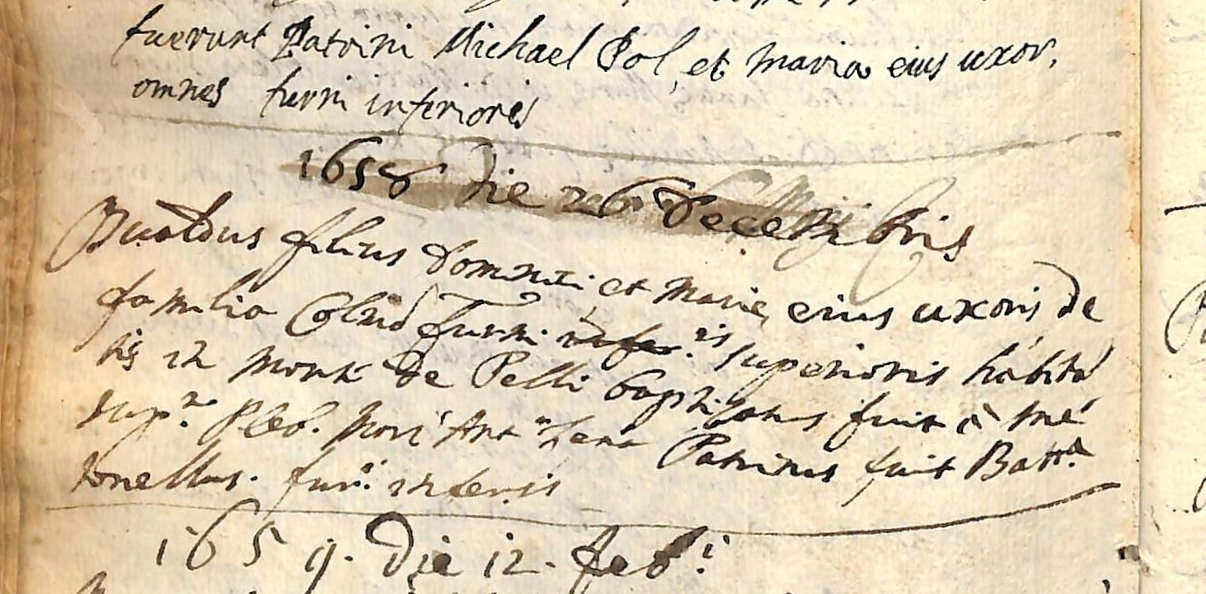 fuerunt Patrini Michael Pol, et Maria eius uxor,
omnes furni inferioris
1658 die 26 Decembris
filius Dominici et Marie eius uxoris de
familia furni infer.is superioris habitā
tis in Monte de Pelli baptizatus fuit à me
sup.r Pleb. Nori Ant.º Patrinus fuit Batt.a
Tonellus. furⁱ. inferis
1659. Die 12. feb.i